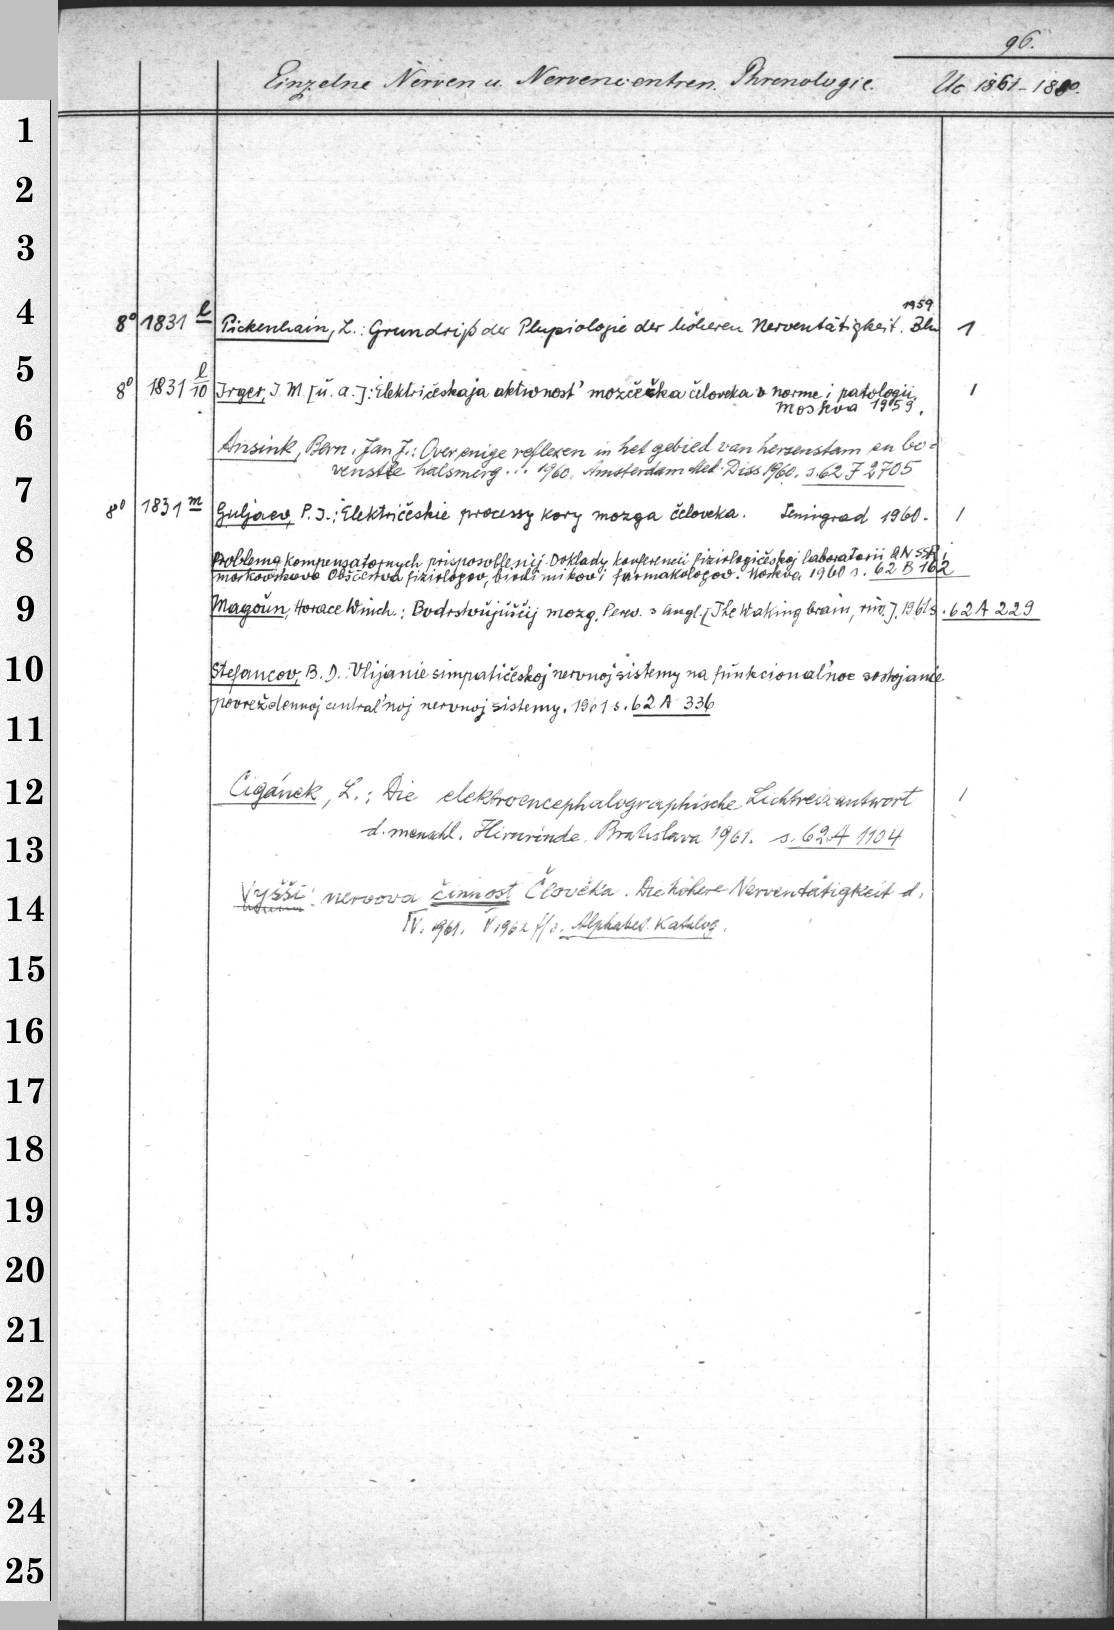 96.
Einzelne Nerven u. Nervencentren. Phrenologie. Uc 1861-1880.
1
2
3
1959
4 8° 1831 l Pickenhain, L.: Grundriß der Physiologie der höheren Nerventätigkeit. Bln 1
5 8° 1831 l/10 Irger, I. M. [u. a.]: Električeskaja aktivnost' mozžečka čeloveka v norme i patologii. 1
Moskva 1959.
6 Ansink, Bern. Jan J.: Over enige reflexen in het gebied van hersenstam en bo=
venste halsmerg... 1960. Amsterdam Med. Diss 1960. s. 62 F 2705
7 8° 1831 m Guljaev, P. I.: Električeskie processy kory mozga čeloveka. Leningrad 1960. 1
8 Problema kompensatornych prisposoblenij. Doklady konferencii fiziologičeskoj laboratorii AN SSR i
moskovskovo Obščestva fiziologov, biochimikov i farmakologov. Moskva 1960 s. 62 B 162
9 Magoun, Horace Winch.: Bodrstvujuščij mozg. Perev. s angl. [The Waking brain, ]. 1961 s. 62 A 229
10 Stefancov, B. D. Vlijanie simpatičeskoj nervnoj sistemy na funkcional'noe sostojanie
povreždennoj central'noj nervnoj sistemy. 1961 s. 62 A 336
11
12 Cigánek, L.: Die elektroencephalographische Lichtreizantwort 1
13 d. menschl. Hirnrinde. Bratislava 1961. s. 62 A 1104
14 Vyšší nervova činnost Človéka. Die höhere Nerventätigkeit d.
IV. 1961. V 1962 s. Alphabet. Katalog.
15
16
17
18
19
20
21
22
23
24
25